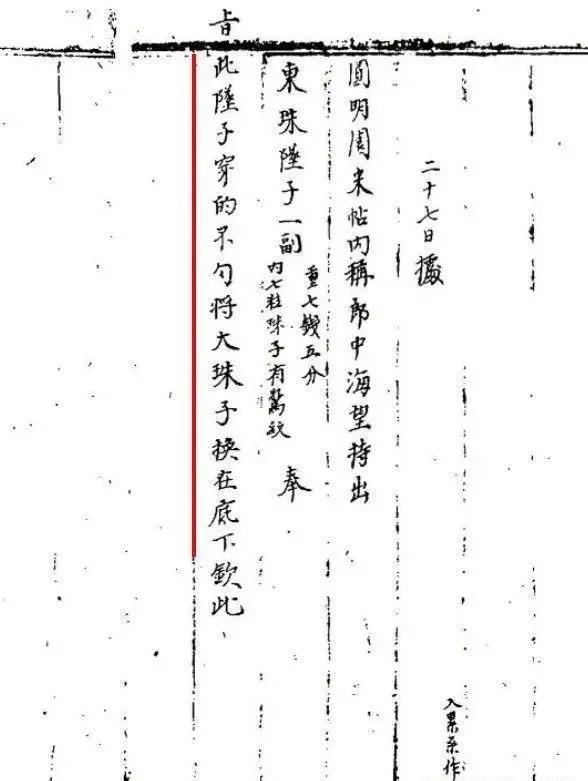 二十七日據
圓明園来帖内稱郎中海望持出
東珠墜子一副重七錢五分内七粒珠子有驚紋奉
旨此墜子穿的不勻將大珠子换在底下欽此
入累系作